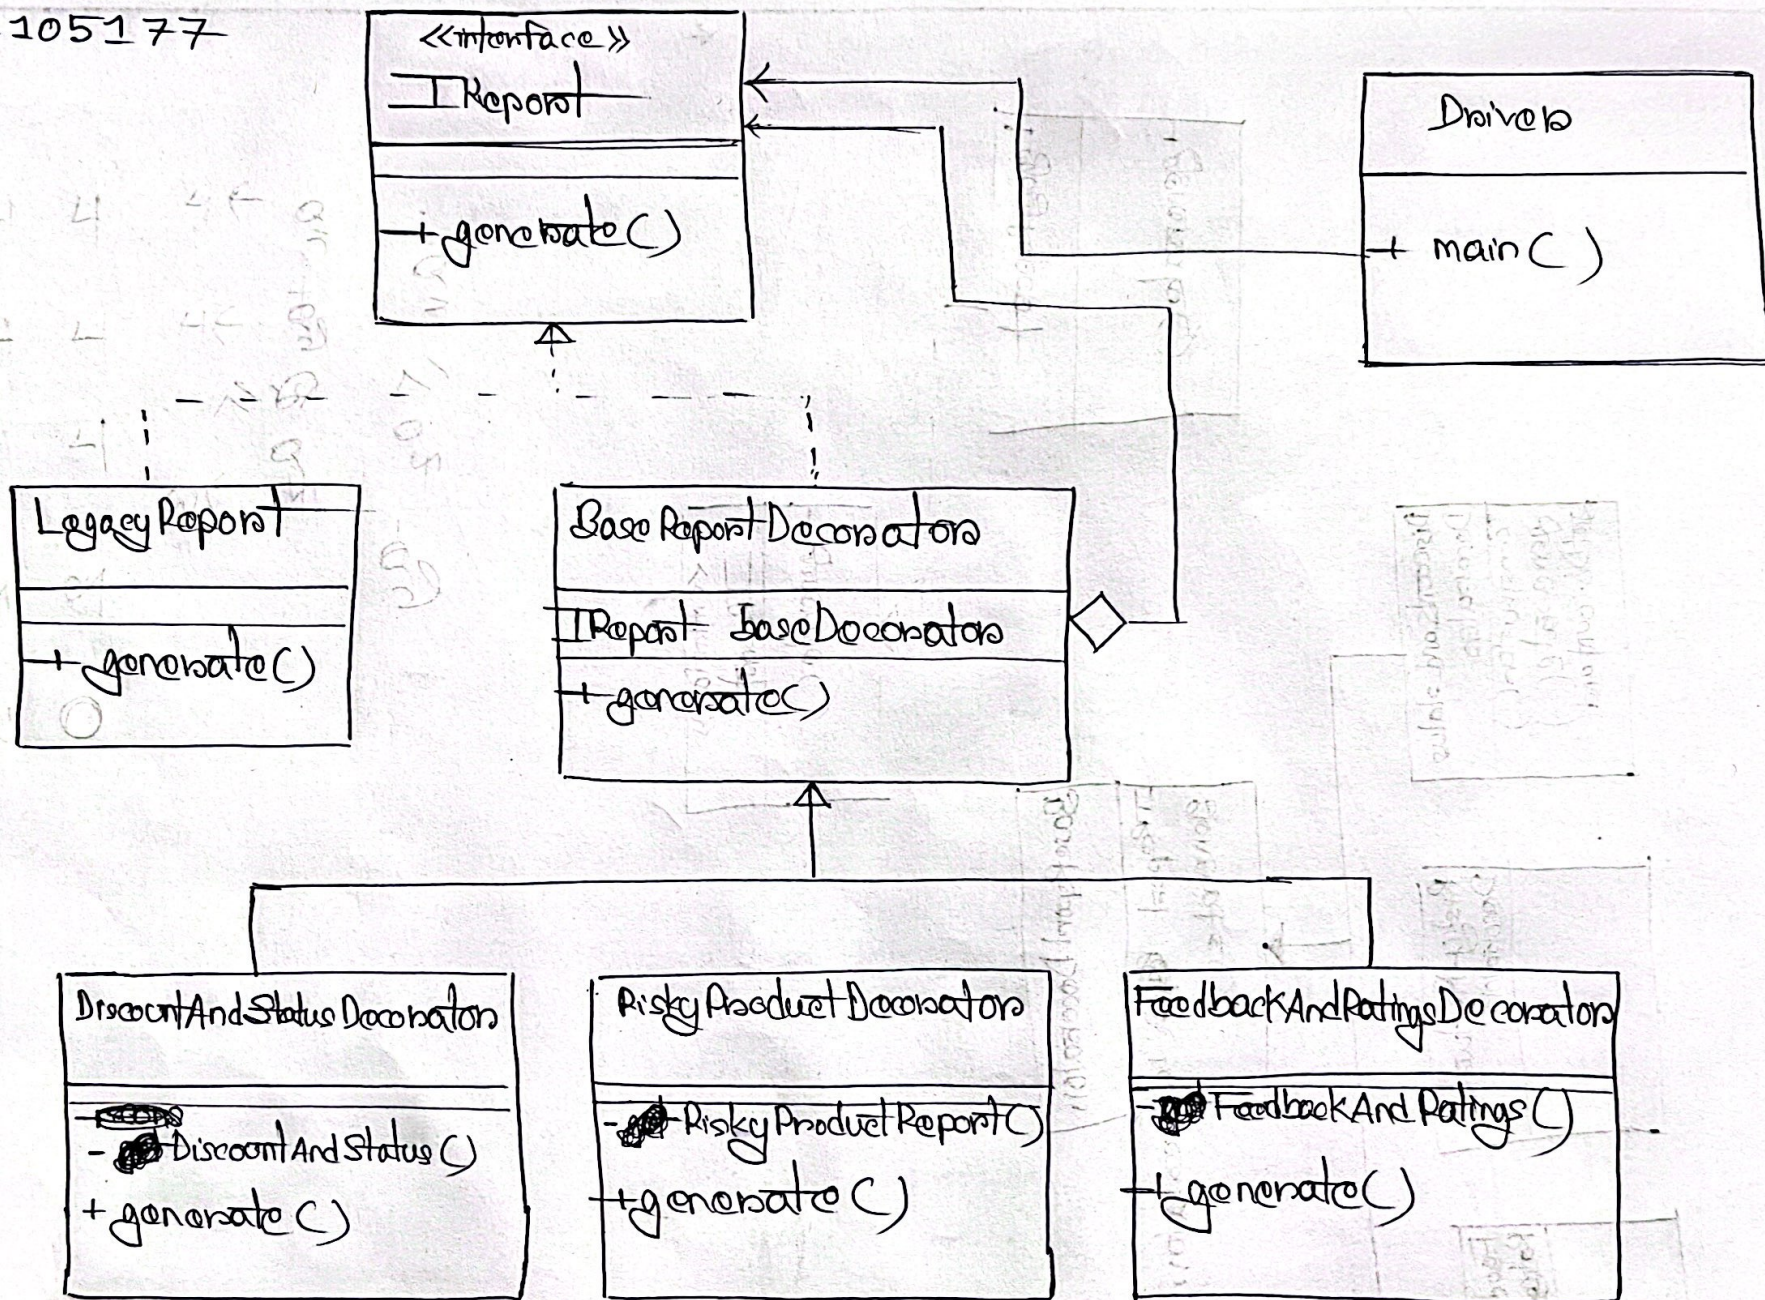 105177
«interface»
IReport
+ generate()
Driver
+ main()
LegacyReport
+ generate()
BaseReportDecorator
IReport BaseDecorator
+ generate()
DiscountAndStatusDecorator
- DiscountAndStatus()
+ generate()
RiskyProductDecorator
- RiskyProductReport()
+ generate()
FeedbackAndRatingsDecorator
- FeedbackAndRatings()
+ generate()